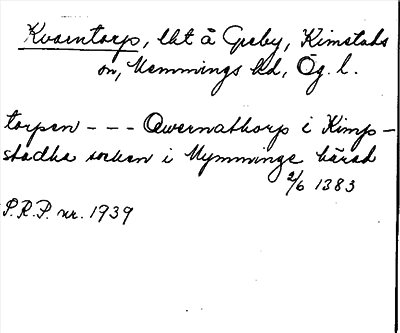 Kvarntorp, lht å Greby, Kimstads
sn, Memmings hd, Ög. l.
torpen - - - Qwernathorp i Kimp-
stadha socken i Mymminge härad
2/6 1383
P.R.P. nr. 1939